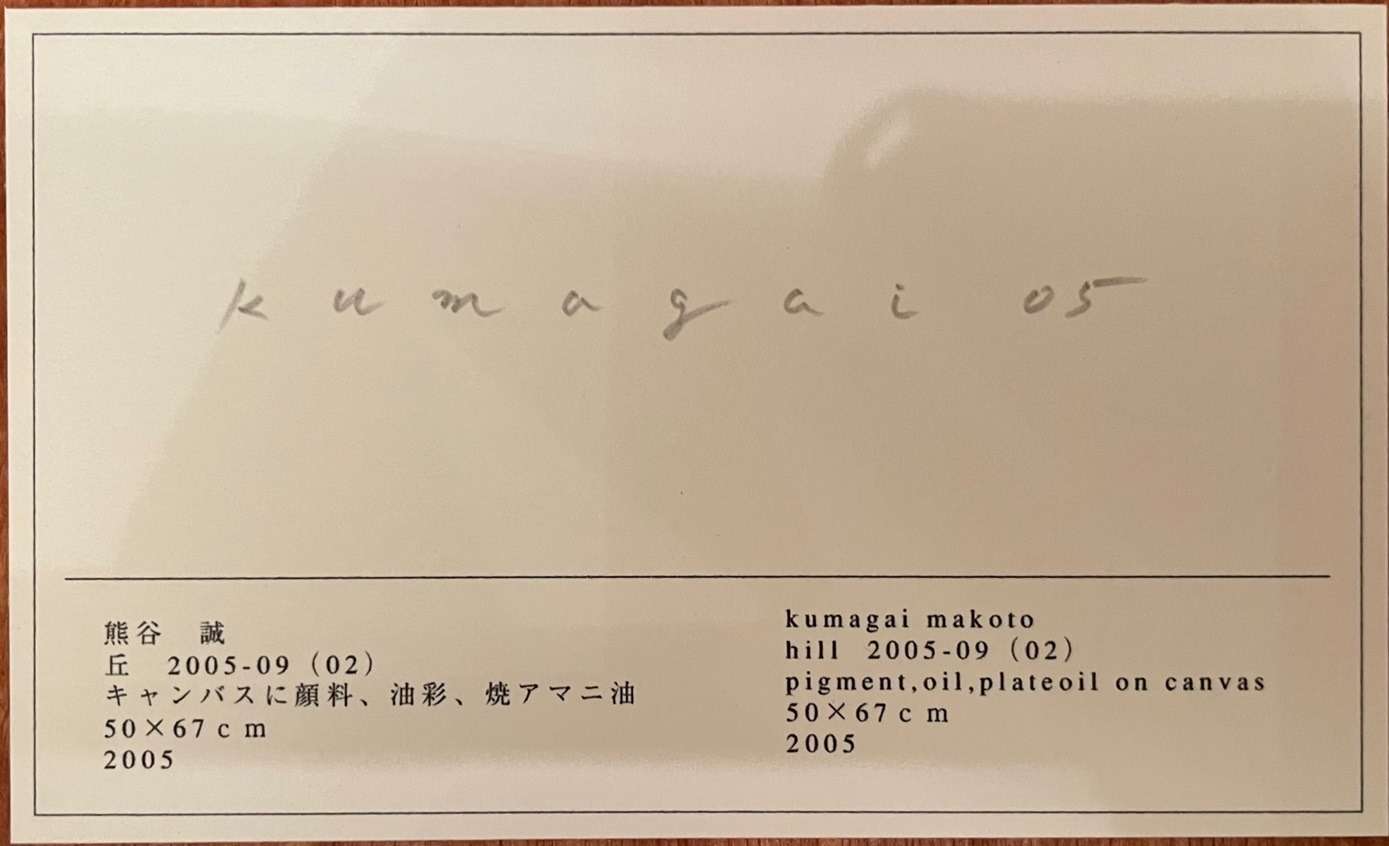 kumagai 05
熊谷　誠
丘　2005-09（02）
キャンバスに顔料、油彩、焼アマニ油
50×67ｃｍ
2005
kumagai makoto
hill 2005-09（02）
pigment,oil,plateoil on canvas
50×67ｃｍ
2005